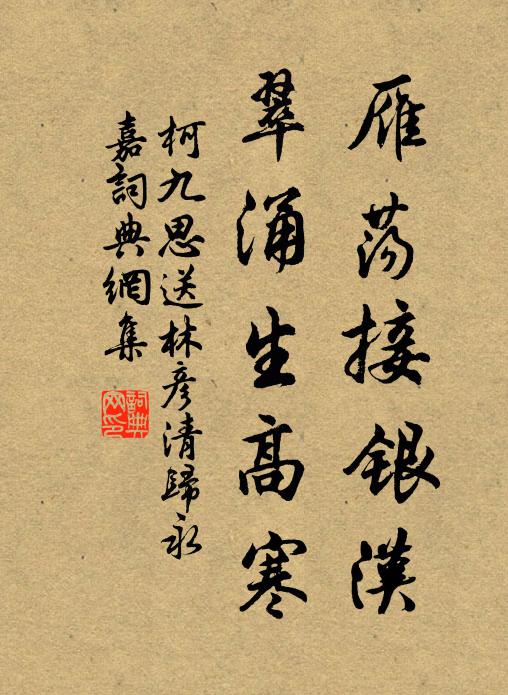 雁蕩接銀漢
翠涌生高寒
柯九思送林彥清歸永
嘉詞典網集
詞典
网印